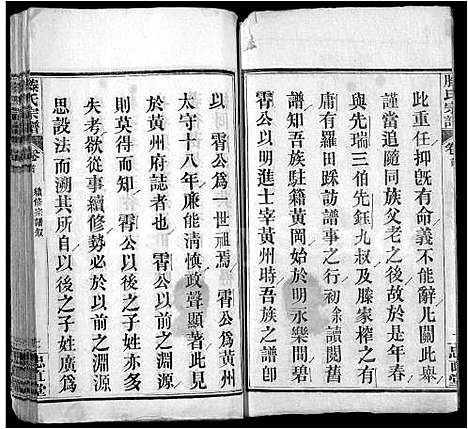 滕氏宗譜
此重任抑旣有命義不能辭凡關此舉
謹當追隨同族父老之後於是
與先瑞三伯先鈺九叔及滕家榨之行
虔有羅田踩訪譜事之行初徐讀閱舊
譜知吾族駐籍黃岡始於明永樂間碧
霄公以明進士宰黃州時吾族之譜卽
二
以 霄公爲一世祖焉 霄公爲黃州
太守十八年廉能清慎政聲顯著此見
於黃州府誌者也 霄公以前之淵源
則莫得而知 霄公以後之子姓亦多
失考欲從事續修勢必於以前之淵源
思設法而溯其所自以後之子姓廣爲
滕氏宗譜
卷首
續修宗譜敘
二
思本堂